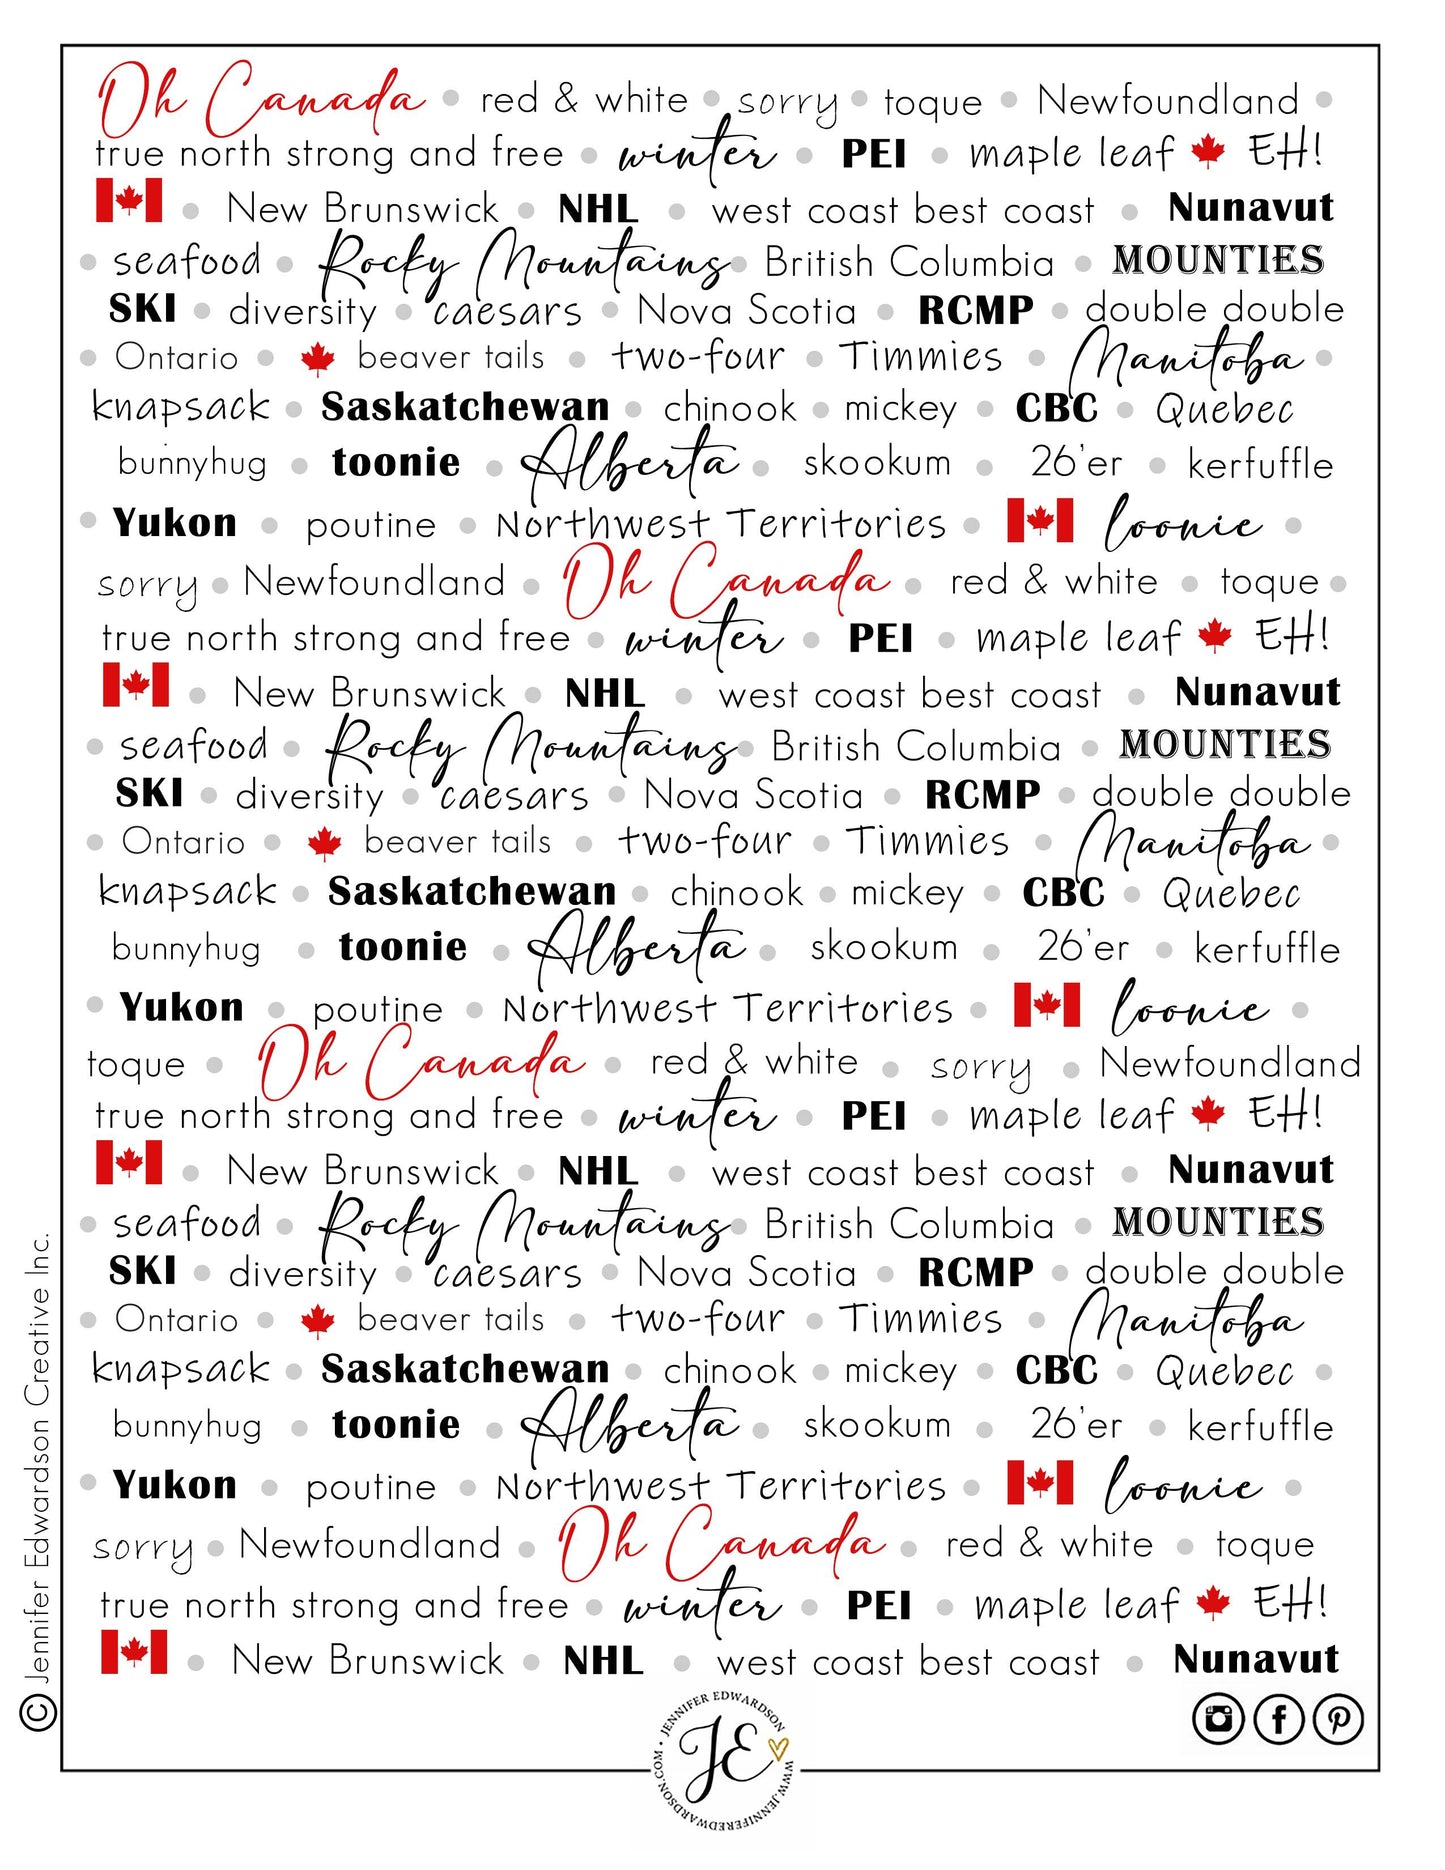 Oh Canada • red & white • sorry • toque • Newfoundland •
true north strong and free • winter • PEI • maple leaf EH!
• New Brunswick • NHL • west coast best coast • Nunavut
• seafood • Rocky Mountains • British Columbia • MOUNTIES
SKI • diversity • caesars • Nova Scotia • RCMP • double double
• Ontario • beaver tails • two-four • Timmies • Manitoba •
knapsack • Saskatchewan • chinook • mickey • CBC • Quebec
bunnyhug • toonie • Alberta • skookum • 26'er • kerfuffle
• Yukon • poutine • Northwest Territories • loonie •
sorry • Newfoundland • Oh Canada • red & white • toque •
true north strong and free • winter • PEI • maple leaf EH!
• New Brunswick • NHL • west coast best coast • Nunavut
• seafood • Rocky Mountains • British Columbia • MOUNTIES
SKI • diversity • caesars • Nova Scotia • RCMP • double double
• Ontario • beaver tails • two-four • Timmies • Manitoba •
knapsack • Saskatchewan • chinook • mickey • CBC • Quebec
bunnyhug • toonie • Alberta • skookum • 26'er • kerfuffle
• Yukon • poutine • Northwest Territories • loonie •
toque • Oh Canada • red & white • sorry • Newfoundland
true north strong and free • winter • PEI • maple leaf EH!
• New Brunswick • NHL • west coast best coast • Nunavut
• seafood • Rocky Mountains • British Columbia • MOUNTIES
SKI • diversity • caesars • Nova Scotia • RCMP • double double
• Ontario • beaver tails • two-four • Timmies • Manitoba
knapsack • Saskatchewan • chinook • mickey • CBC • Quebec •
bunnyhug • toonie • Alberta • skookum • 26'er • kerfuffle
• Yukon • poutine • Northwest Territories • loonie •
sorry • Newfoundland • Oh Canada • red & white • toque
true north strong and free • winter • PEI • maple leaf EH!
• New Brunswick • NHL • west coast best coast • Nunavut
© Jennifer Edwardson Creative Inc.
• JENNIFER EDWARDSON
JE
WWW.JENNIFEREDWARDSON.COM